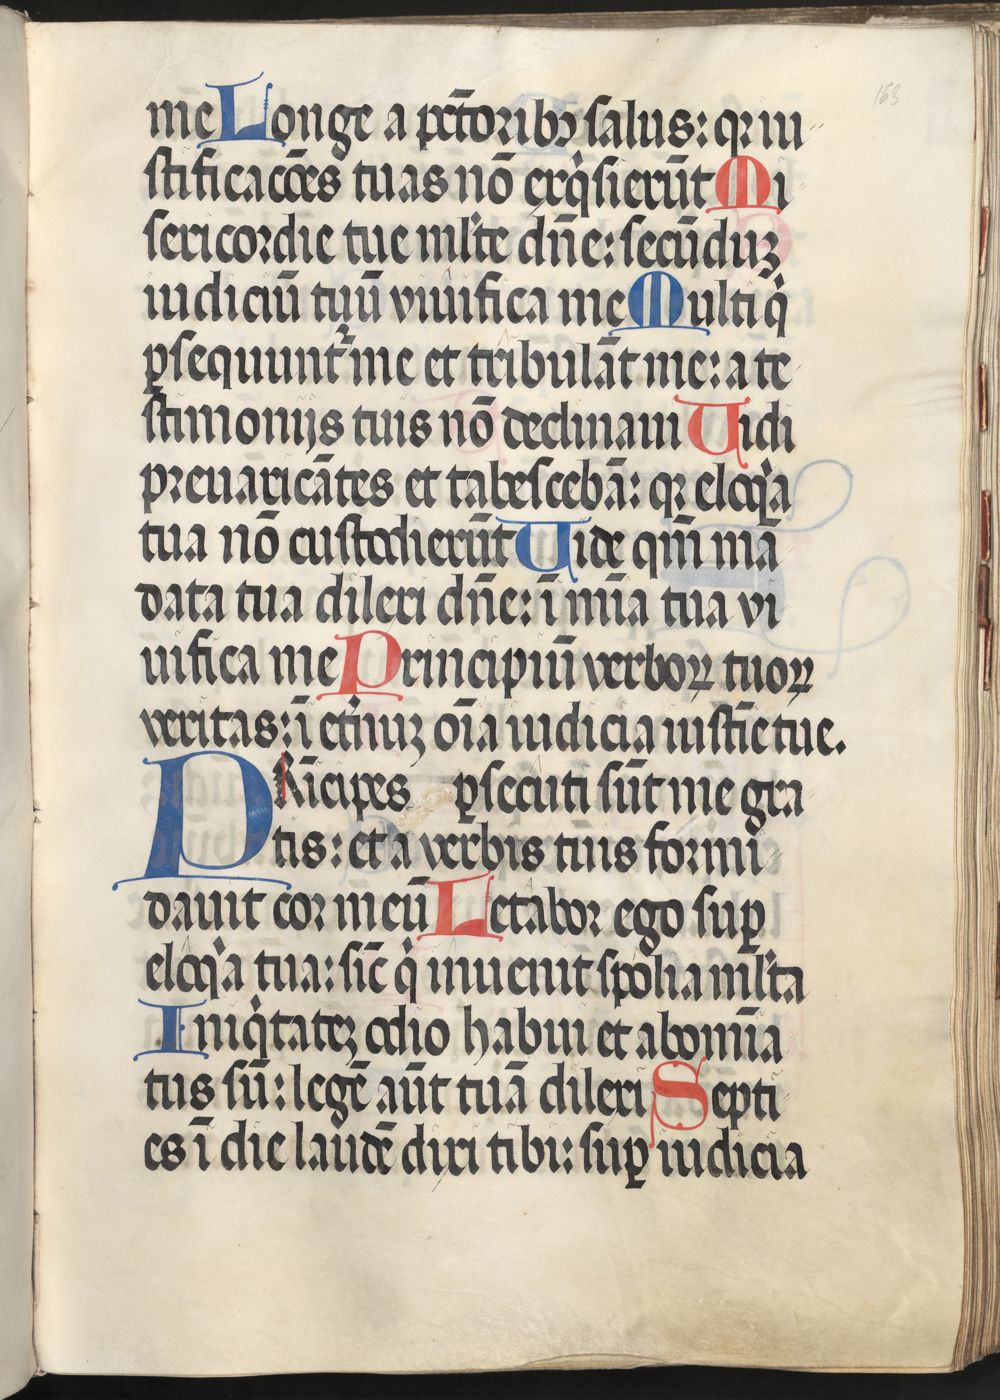 163
me Longe a pctoribꝫ salus: qꝛ iu
stificacões tuas nõ exqͥsierũt Mi
sericordie tue ml̓te dñe: secũduꝫ
iudiciũ tuũ viuifica me Multi qͥ
ꝑsequunt᷑ me et tribulãt me: a te
stimonijs tuis nõ declinaui Uidi
preuaricãtes et tabescebã: qꝛ eloqͥa
tua nõ custodierũt Uide qm̃ mã
data tua dilexi dñe: ĩ mĩa tua vi
uifica me Principiũ verboꝝ tuoꝝ
veritas: ĩ et̓nuꝫ oĩa iudicia iustie̅ tue.
PRĩcipes ꝑsecuti sũt me gra
tis: et a verbis tuis formi
dauit cor meũ Letabor ego suꝑ
eloqͥa tua: sic̃ qͥ inuenit spolia ml̓ta
Iniqͥtateꝫ odio habui et abomĩa
tus sũ: legẽ aũt tuã dilexi Septi
es ĩ die laudẽ dixi tibi: suꝑ iudicia